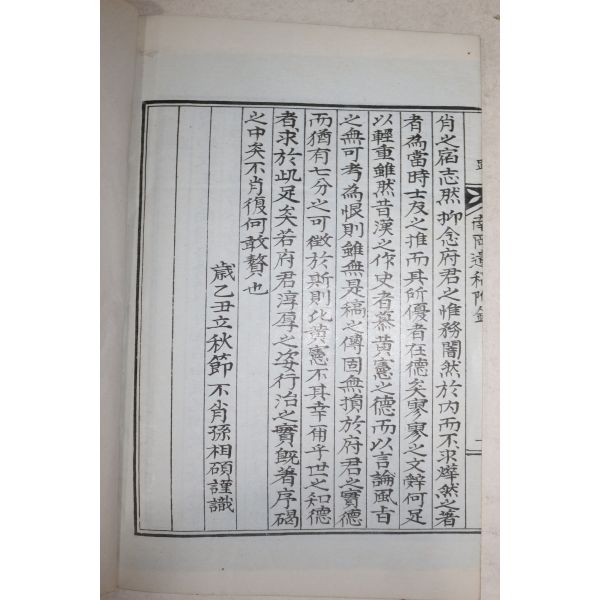 南岡遺稿附錄
肖之宿志然抑念府君之惟務闇然於內而不求燁然之著
者為當時士友之推而其所優者在德矣寥寥之文辭何足
以輕重雖然昔漢之作史者慕黃憲之德而以言論風旨
之無可考為恨則雖無是稿之傳固無損於府君之實德
而猶有七分之可徵於斯則比黃憲不其幸甬乎世之知德
者求於此足矣若府君淳厚之姿行治之實旣著序碣
之中矣不肖復何敢贅也
歲乙丑立秋節不肖孫相碩謹識